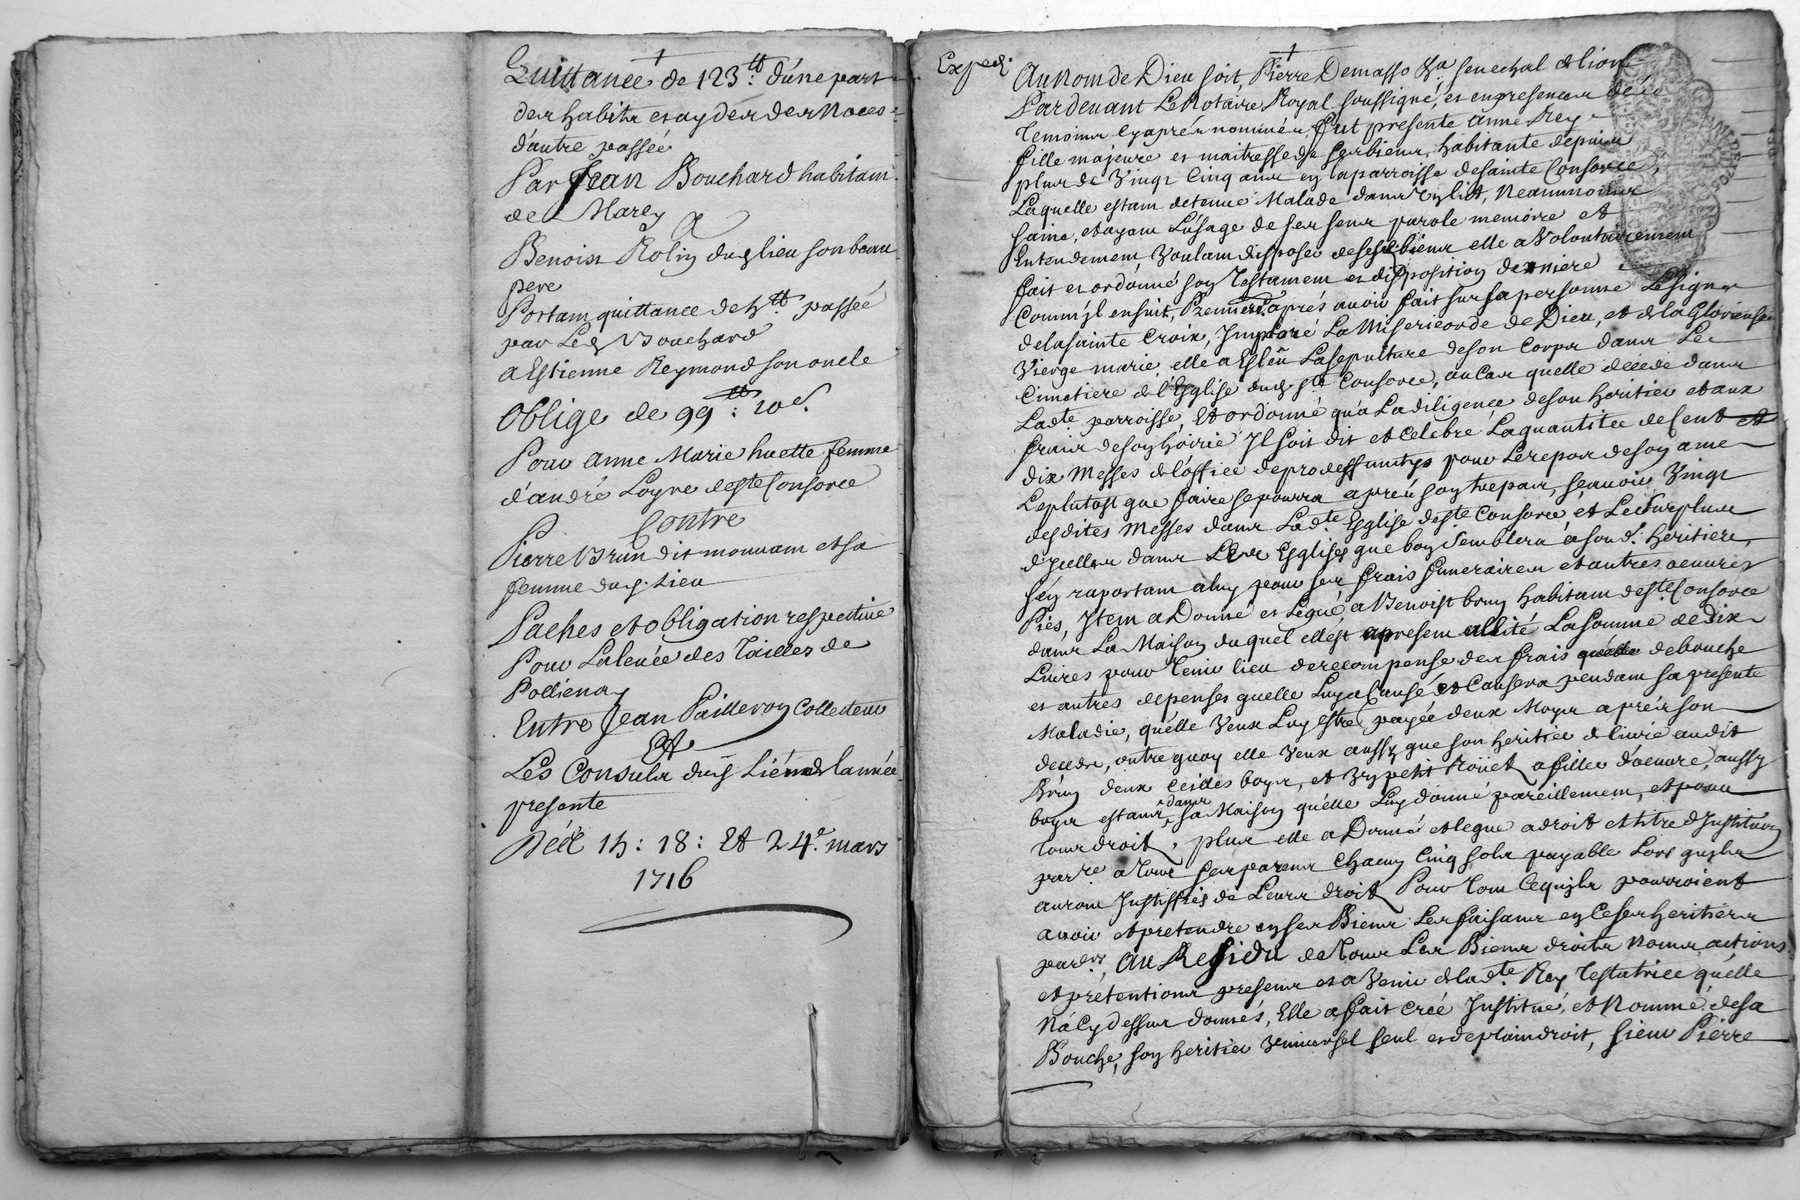 Quittance de 123ᵗᵗ: d'une part
des habits et aydes des Noces
d'autre passée
Par Jean Bouchard habitant
de Marcy
A
Benoist Rolin dud. lieu son beau
pere
Portant quittance de 5ᵗᵗ. passée
par Led. Bouchard
a Estienne Reymond son oncle
Oblige de 99ᵗᵗ: 10ˢ.
Pour anne Marie huette femme
d'andré Loyre de ste Consorce
Contre
Pierre Brun dit mouvant et sa
femme dud. Lieu
Paches et obligation respective
Pour La levée des Tailles de
Pollienay
Entre Jean Pailleron Collecteur
Et
Les Consuls dud. Lieu de lannée
presente
Des 15: 18: Et 24ᵉ. mars
1716
Exped.
Au Nom de Dieu soit, Pierre Demasso senechal de lion
Pardevant Le Notaire Royal soussigné, et en presence des
temoins cy aprés nommés fut presente anne Rey
fille majeure et maitresse de ses biens, habitante depuis
plus de vingt cinq ans en la parroisse de sainte Consorce,
Laquelle estant detenue Malade dans un lict, Neanmoins
saine, et ayant L'usage de ses sens parole memoire et
Entendement, voulant disposer de ses biens elle a volontairement
fait et ordonné son Testament et disposition derniere
Comm'il ensuit, Premierᵗ. aprés avoir fait sur sa personne Le signe
de la sainte Croix, Imploré La Misericorde de Dieu, et de la Glorieuse
Vierge marie, elle a Esleu La sepulture de son Corps dans Le
Cimetiere de l'Esglise dud. ste Consorce, au cas quelle decede dans
Ladᵗᵉ. parroisse, Et ordonné qu'a La diligence de son heritier et aux
frais de son hoirie Il soit dit et celebré La quantité de Cent et
dix Messes de l'office de pro deffunctis pour Le repos de son ame
Le plutost que faire se pourra aprés son trepas, sçavoir vingt
desdites Messes dans Ladᵗᵉ. Esglise de sᵗᵉ Consorce, et Le surplus
d'ycelles dans Les Esglises que bon semblera a son d. heritiere,
s'en raportant a luy pour ses frais funeraires et autres oeuvres
Pies, Item a Donné et Legué a Benoist brun habitant de sᵗᵉ Consorce
dans La Maison duquel elle est a present allité La somme de dix
Livres pour tenir lieu de recompense des frais de bouche
et autres depenses quelle Luy a Causé et Causera pendant sa presente
Maladie, quelle veux Luy estre payée deux Moys aprés son
decede, outre quoy elle veux aussy que son heritier delivre audit
Brun deux seilles boys, et un petit Roüet a filler d'oeuvre, aussy
boys estants dans sa Maison quelle Luy donne pareillement, et pour
tour droit, plus elle a Donné et legue a droit et titre d'Institution
parᵉ a tous ses parens chacun Cinq sols payable Lors qu'ils
auront Justiffiés de Leurs droits Pour tout ce qu'ils pourroient
avoir et pretendre en ses Biens Les faisant en ce ses heritiers
parᵉʳˢ, Au Residu de Tous Les Biens droits Noms actions
et prétentions presens et a Venir de ladᵗᵉ. Rey Testatrice quelle
N'a cy dessus donnés, Elle a fait créé Institué, et Nommé de sa
Bouche, son heritier universel seul et de plain droit, sieur Pierre